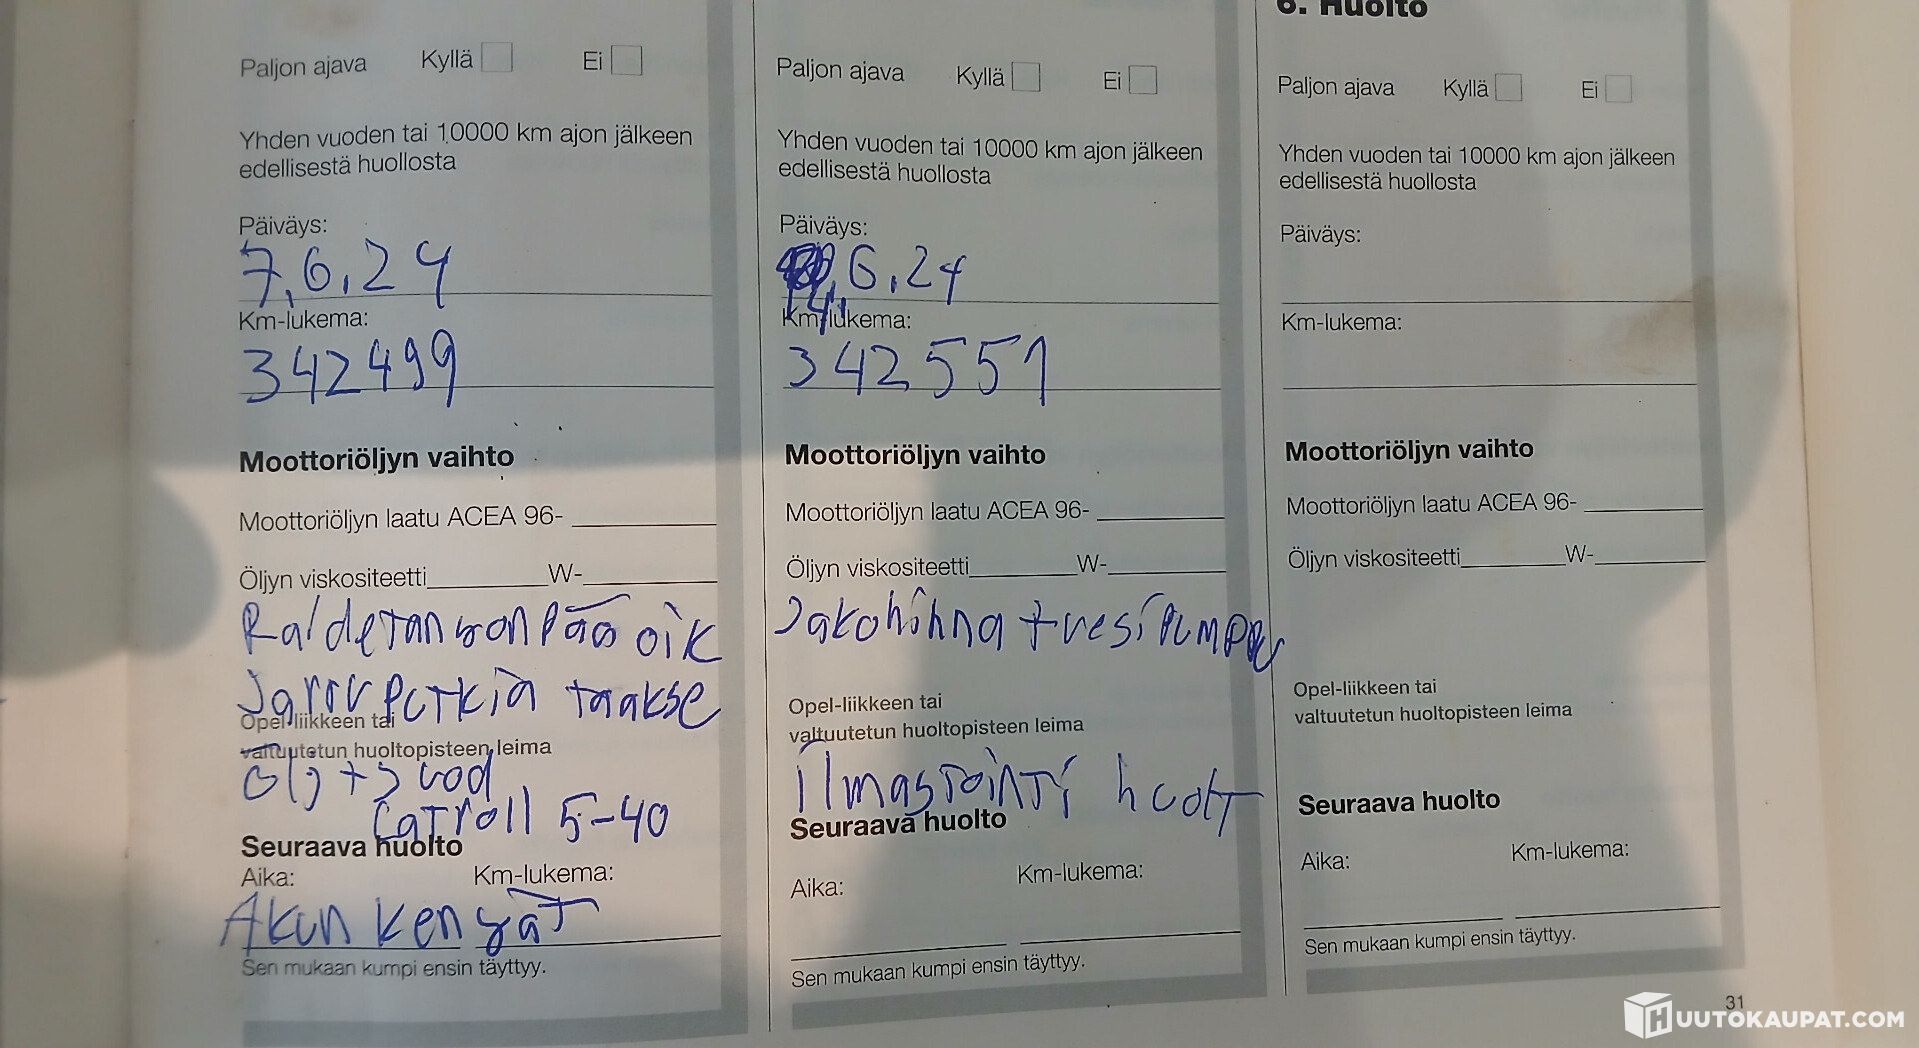 Paljon ajava Kyllä Ei
Yhden vuoden tai 10000 km ajon jälkeen
edellisestä huollosta
Päiväys:
7.6.24
Km-lukema:
342499
Moottoriöljyn vaihto
Moottoriöljyn laatu ACEA 96-
Öljyn viskositeetti W-
Raidetangon Pää oik
Jarru Putkia taakse
Opel-liikkeen tai
valtuutetun huoltopisteen leima
Ölj + Suod
Catroll 5-40
Seuraava huolto
Aika: Km-lukema:
Akun kengät
Sen mukaan kumpi ensin täyttyy.
Paljon ajava Kyllä Ei
Yhden vuoden tai 10000 km ajon jälkeen
edellisestä huollosta
Päiväys:
14.6.24
Km-lukema:
342551
Moottoriöljyn vaihto
Moottoriöljyn laatu ACEA 96-
Öljyn viskositeetti W-
Jakohihna + vesipumppu
Opel-liikkeen tai
valtuutetun huoltopisteen leima
ilmastointi huolt
Seuraava huolto
Aika: Km-lukema:
Sen mukaan kumpi ensin täyttyy.
6. Huolto
Paljon ajava Kyllä Ei
Yhden vuoden tai 10000 km ajon jälkeen
edellisestä huollosta
Päiväys:
Km-lukema:
Moottoriöljyn vaihto
Moottoriöljyn laatu ACEA 96-
Öljyn viskositeetti W-
Opel-liikkeen tai
valtuutetun huoltopisteen leima
Seuraava huolto
Aika: Km-lukema:
Sen mukaan kumpi ensin täyttyy.
31
HUUTOKAUPAT.COM